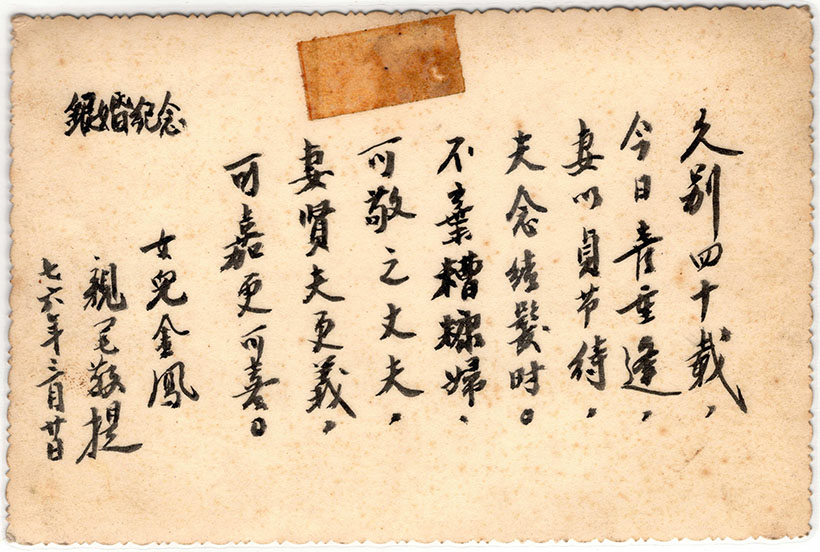 久别四十载，
今日喜重逢，
妻以貞节待，
夫念结髮时。
不棄糟糠婦，
可敬之丈夫，
妻賢夫更義，
可嘉更可喜。
銀婚紀念
女兒金鳳
親笔敬提
七六年三月廿日